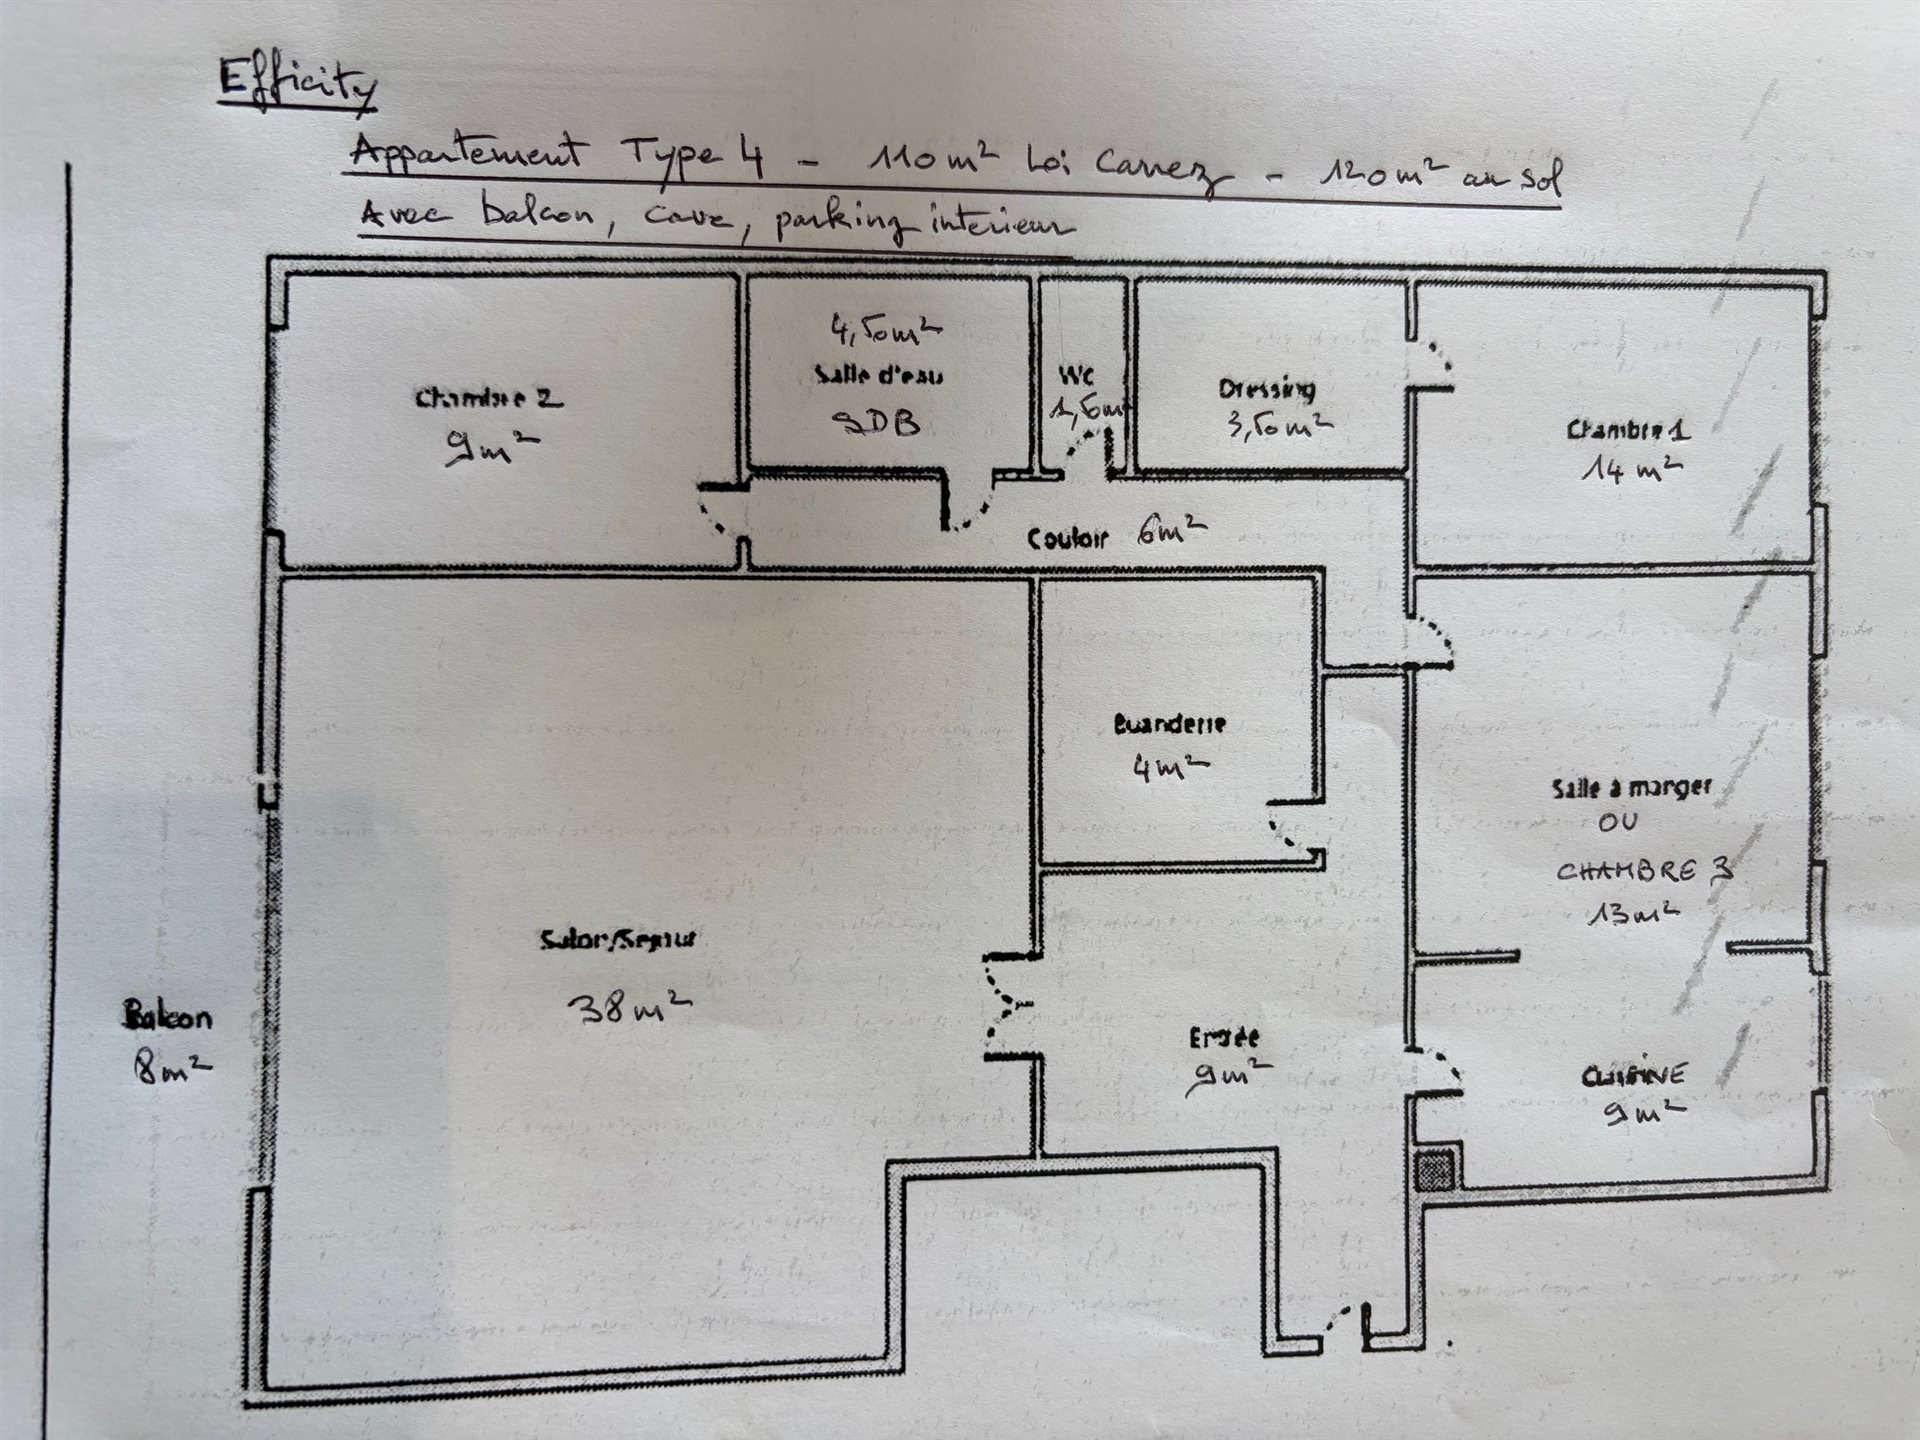 Efficity
Appartement Type 4 - 110 m² Loi Carrez - 120 m² au sol
Avec balcon, cave, parking interieur
Chambre 2
9 m²
4,50 m²
Salle d'eau
SDB
WC
1,50 m²
Dressing
3,50 m²
Chambre 1
14 m²
Couloir 6 m²
Buanderie
4 m²
Salle à manger
OU
CHAMBRE 3
13 m²
Salon/Séjour
38 m²
Balcon
8 m²
Entrée
9 m²
CUISINE
9 m²